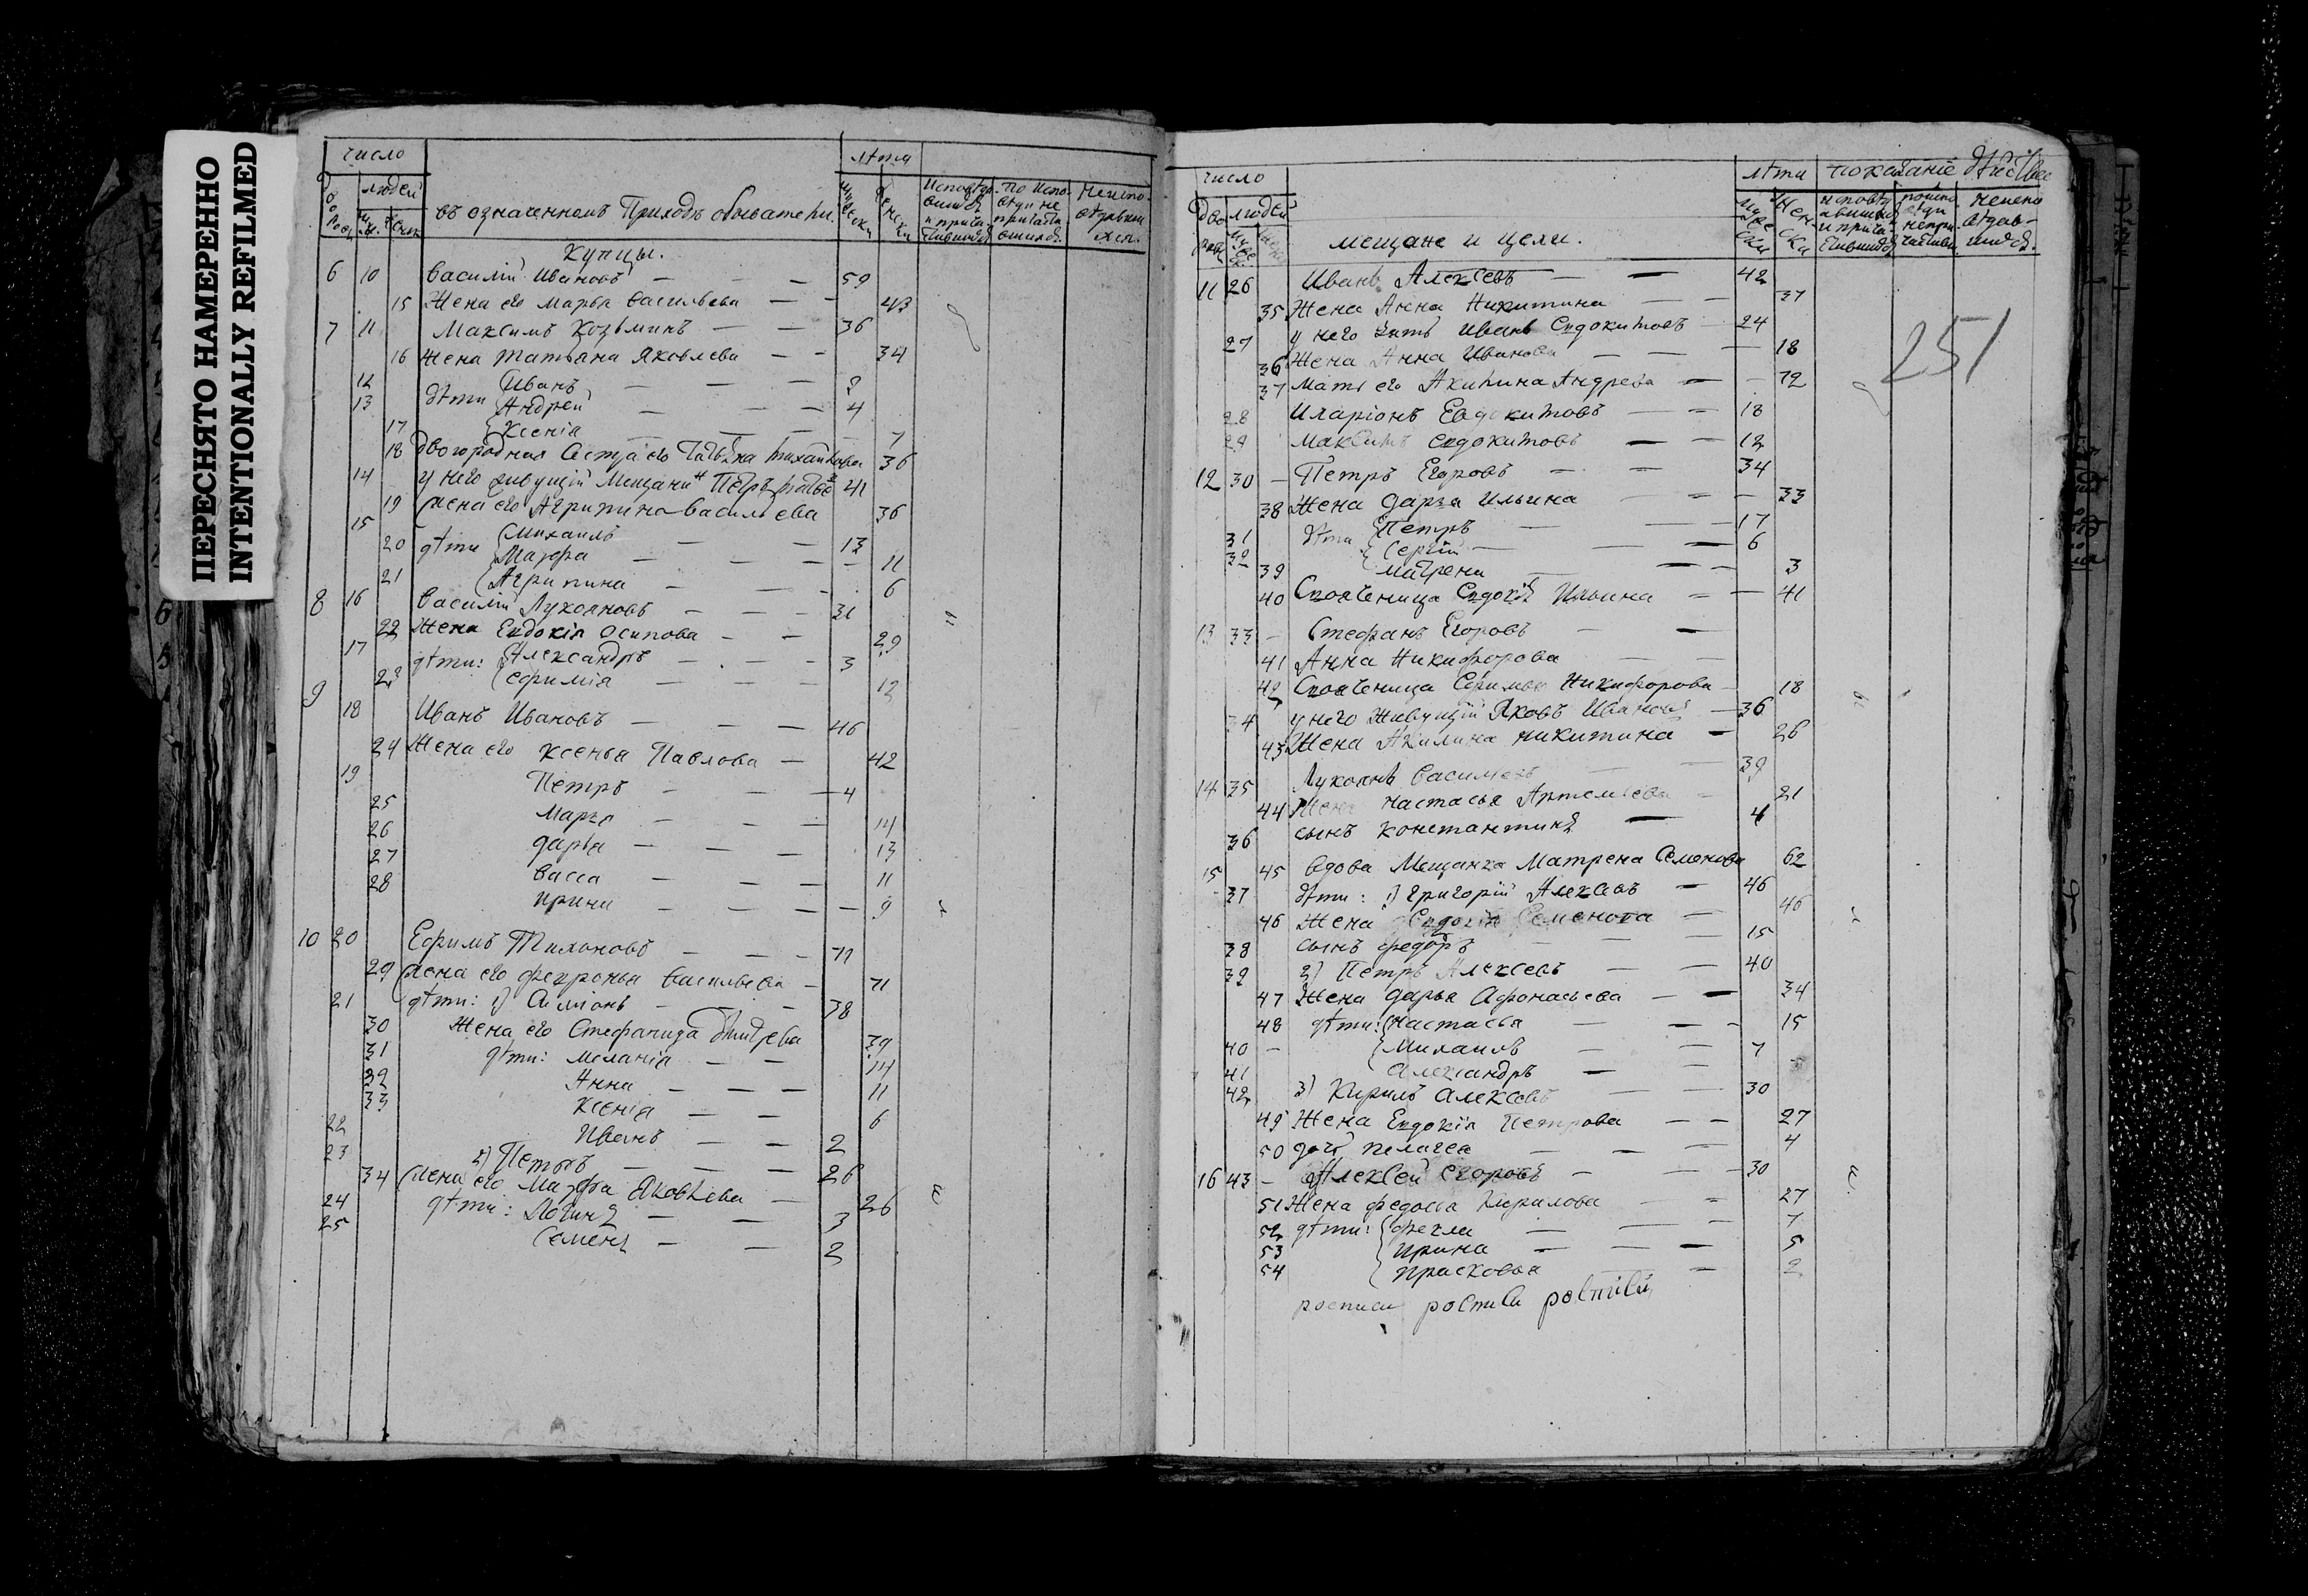 ПЕРЕСНЯТО НАМЕРЕННО
INTENTIONALLY REFILMED
число
лѣта
людей
въ означенномъ Приходѣ обыватели
Купцы.
6 10 Василій Ивановъ — — — 59
15 Жена его Марья Васильева — — 43
7 11 Максимъ Козьминъ — — 36
16 Жена Татьяна Яковлева — — 34
12 дѣти Иванъ — — —
13 Андрей — — 4
17 Ксенія — — — 7
18 Двоюродная Сестра его 36
14 у него живущій Мещанинъ Петръ 41
19 Жена его Агрипина Васильева 36
15 Михаилъ — — 13
20 дѣти Марфа — — — 11
21 Агрипина — — 6
8 16 Василій Лукояновъ — — 31
22 Жена Евдокія Осипова — — 29
17 дѣти: Александръ — — — 3
23 Ефимія — — — 12
9 18 Иванъ Ивановъ — — — 46
24 Жена его Ксенья Павлова — 42
19 Петръ — — — 4
25 Марья — — — 14
26 Дарья — — — 13
27 Васса — — — 11
28 Ирина — — — — 9
10 20 Ефимъ Тихоновъ — — — 71
29 Жена его Февронья Васильева — 71
21 дѣти: 1) Симіонъ — — — 38
30 Жена его Стефанида 39
31 дѣти: Меланія — — 14
32 Анна — — — 11
33 Ксенія — — 6
22 Иванъ — — 2
23 Петръ — — — 26
34 Жена его Марфа Яковлева — 26
24 дѣти: Логинъ — — 3
25 Семенъ — — 2
число
лѣта показаніе дѣйства
людей
мещане и цехи.
251
11 26 Иванъ Алексевъ — — 42
35 Жена Анна Никитина — — 37
27 у него зять Иванъ Евдокимовъ — 24
36 Жена Анна Иванова — — — 18
37 мать его Акилина Андрева — — 72
28 Иларіонъ Евдокимовъ — — 18
29 Максимъ Евдокимовъ — — 12
12 30 — Петръ Егоровъ — — 34
38 Жена Дарья Ильина — — — 33
31 дѣти Петръ — — 17
32 Сергій — — — 6
39 Матрена — — — 3
40 Свояченица Евдокія Ильина — — 41
13 33 — Стефанъ Егоровъ — —
41 Анна Никифорова — —
42 Свояченица Ефимья Никифорова — 18
34 у него Живущій Яковъ Ивановъ — 36
43 Жена Акилина Никитина — 26
14 35 Лукоянъ Василевъ — — 39
44 Жена Настасья Артемьева — 21
36 сынъ Константинъ — 4
15 45 Вдова Мещанка Матрена Семенова 62
37 дѣти: 1) Григорій Алексевъ — 46
46 Жена Евдокія Семенова — 46
38 сынъ Федоръ — — — 15
39 2) Петръ Алексевъ — — 40
47 Жена Дарья Афонасьева — — 34
48 дѣти: Настасья — — — 15
40 — Михаилъ — — 7
41 Александръ — —
42 3) Кирилъ Алексевъ — — 30
49 Жена Евдокія Петрова — — 27
50 дочь Пелагея — — — 4
16 43 — Алексей Егоровъ — — — 30
51 Жена Федосья Кирилова — — 27
52 дѣти: Фекла — — — 7
53 Ирина — — — 5
54 Прасковья — 2